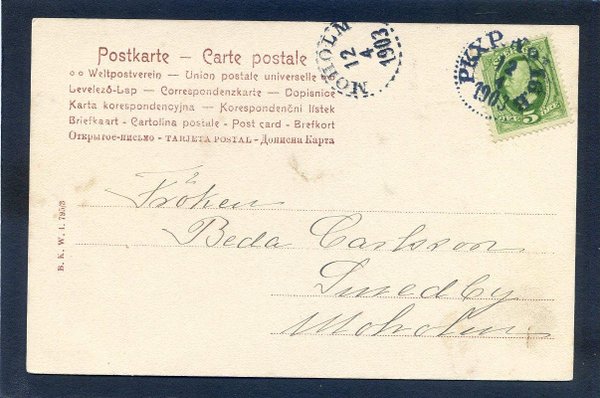 Postkarte — Carte postale
Weltpostverein — Union postale universelle
Levelező-Lap — Correspondenzkarte — Dopisnice
Karta korespondencyjna — Korespondenční lístek
Briefkaart - Cartolina postale - Post card - Brefkort
Открытое-письмо - TARJETA POSTAL - Дописна Карта
MOHOLM
12
4
1903
PKXP.
1903
5
B. K. W. I. 795/3
Fröken
Beda Carlsson
Smedby
Moholm